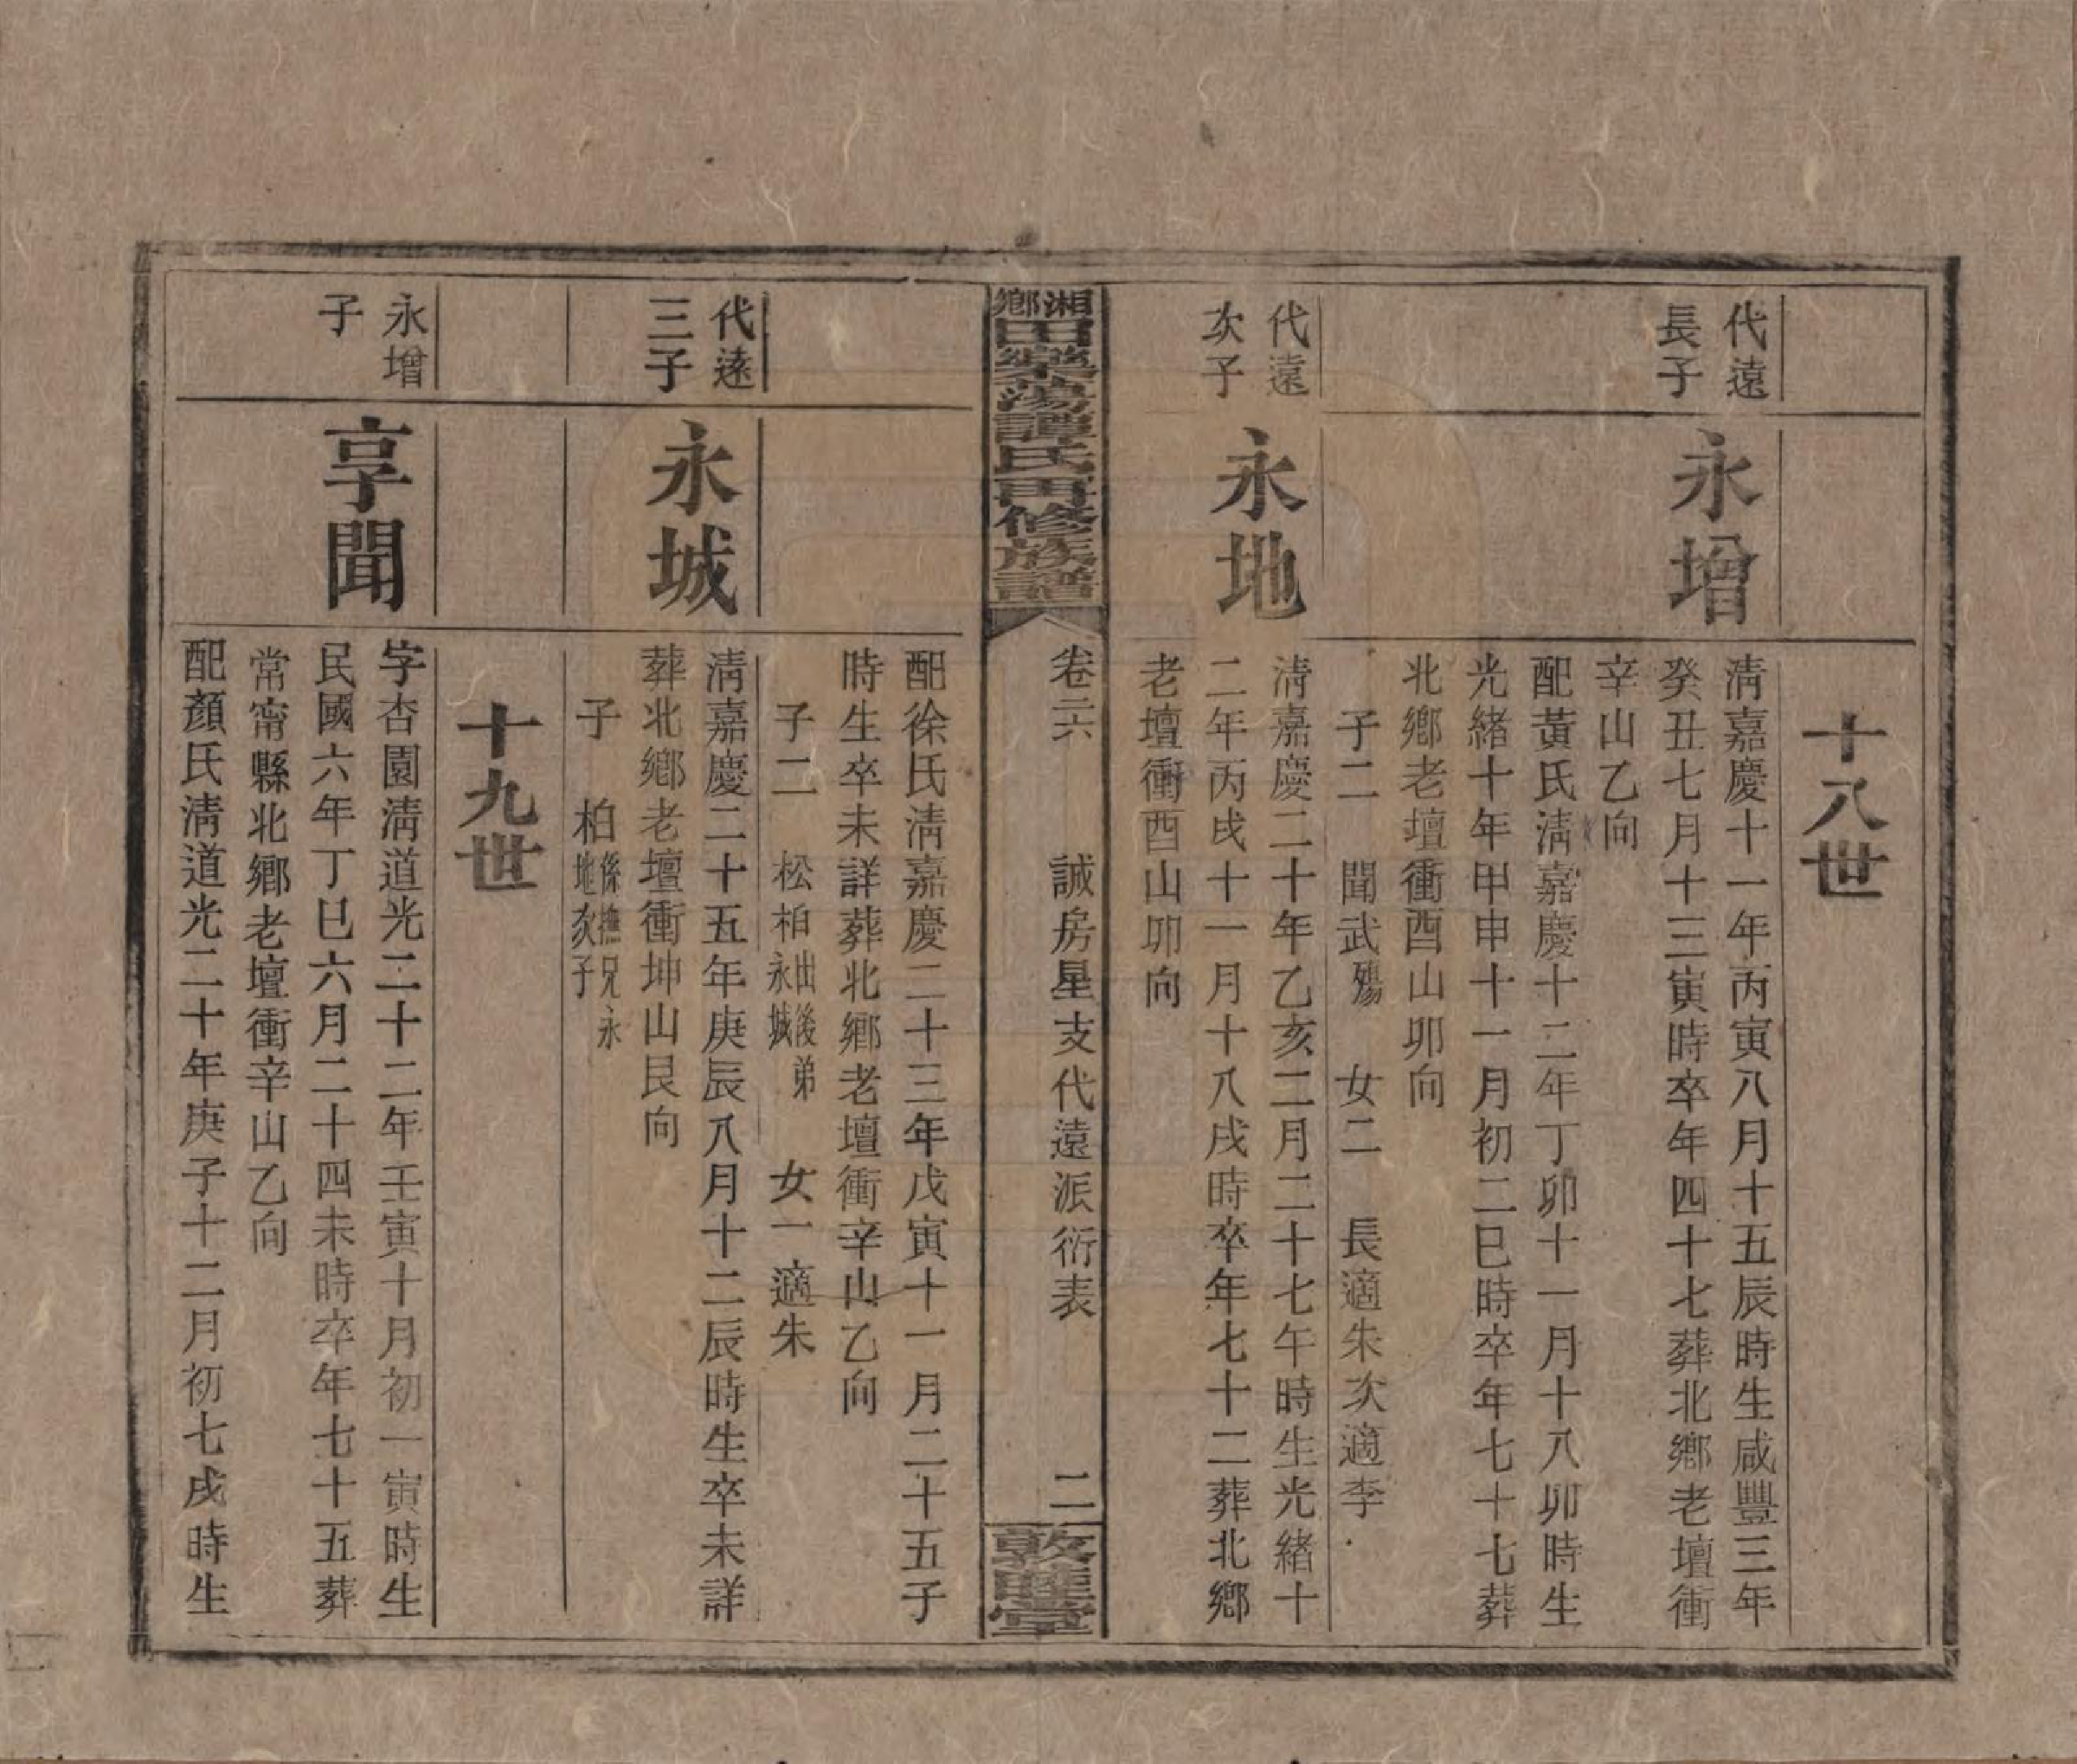 十八世
代遠
長子
永增
清嘉慶十一年丙寅八月十五辰時生咸豐三年
癸丑七月十三寅時卒年四十七葬北鄉老壇衝
辛山乙向
配黃氏清嘉慶十二年丁卯十一月十八卯時生
光緒十年甲申十一月初二巳時卒年七十七葬
北鄉老壇衝酉山卯向
子二 聞武殤 女二 長適朱次適李
代遠
次子
永地
清嘉慶二十年乙亥二月二十七午時生光緒十
二年丙戌十一月十八戌時卒年七十二葬北鄉
老壇衝酉山卯向
湘鄉田樂蕩譚氏再修族譜
卷三六 誠房星支代遠派衍表 二
敦睦堂
配徐氏清嘉慶二十三年戊寅十一月二十五子
時生卒未詳葬北鄉老壇衝辛山乙向
子二 松柏出後弟永城 女一適朱
代遠
三子
永城
清嘉慶二十五年庚辰八月十二辰時生卒未詳
葬北鄉老壇衝坤山艮向
子 柏係撫兄永地次子
十九世
永增
子
享聞
字杏園清道光二十二年壬寅十月初一寅時生
民國六年丁巳六月二十四未時卒年七十五葬
常甯縣北鄉老壇衝辛山乙向
配顏氏清道光二十年庚子十二月初七戌時生